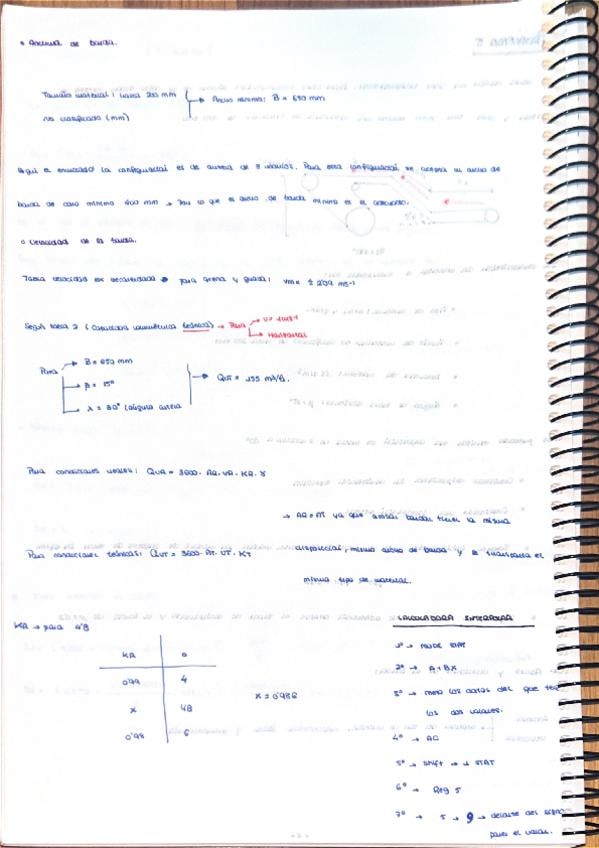 • Anchura de banda.
Tamaño material: hasta 200 mm → Ancho mínimo: B = 650 mm
no clasificado (mm)
Según el enunciado la configuración es de artesa de 3 rodillos. Para esta configuración se acepta un ancho de
banda de como mínimo 400 mm → Por lo que el ancho de banda mínimo es el adecuado.
o Velocidad de la banda.
Tabla velocidad es recomendada → para arena y grava:
Según tabla 2 (Capacidad volumétrica teórica) → Para → V = 1 ms-1
→ Horizontal
Para → B = 650 mm
→ β = 15°
→ λ = 30° (ángulo artesa
→ QVT = 195 m³/h.
Para condiciones reales: QVR = 3600 · AR · VR · KR ·
→ AR = AT ya que ambas bandas tienen la misma
Para condiciones teóricas: QVT = 3600 · AT · VT · KT
disposición, mismo ancho de banda y se transporta el
mismo tipo de material.
KR → para 4'8
CALCULADORA INTERPOLAR
KR
0'99 4
x 4'8
0'98 6
x = 0'986
1º → MODE STAT
2º → A+BX
3º → meto los datos del que tengo
los dos valores.
4º → AC
5º → Shift → 1 STAT
6º → Reg 5
7º → 5 → 9 → delante del
pones el valor.